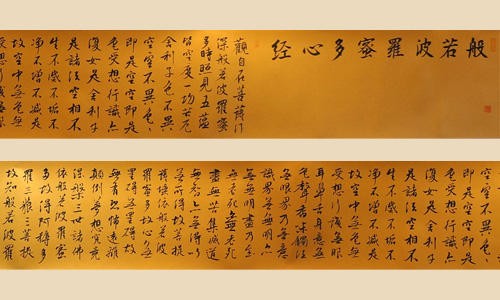 般若波羅蜜多心经
觀自在菩薩行
深般若波羅蜜
多時照見五蘊
皆空度一切苦厄
舍利子色不異
空空不異色色
即是空空即是
色受想行識亦
復如是舍利子
是諸法空相不
生不滅不垢不
淨不增不減是
故空中無色無
受想行識無
即是空空即是
色受想行識亦
復如是舍利子
是諸法空相不
生不滅不垢不
淨不增不減是
故空中無色無
受想行識無眼
耳鼻舌身意無
色聲香味觸法
無眼界乃至無意
識界無無明亦
無無明盡乃至
無老死亦無老死
盡無苦集滅道
無智亦無得以
無所得故菩提
薩埵依般若波
羅蜜多故心無
罣礙無罣礙故
無有恐怖遠離
顛倒夢想究竟
涅槃三世諸佛
依般若波羅蜜
多故得阿耨多
羅三藐三菩提
故知般若波羅